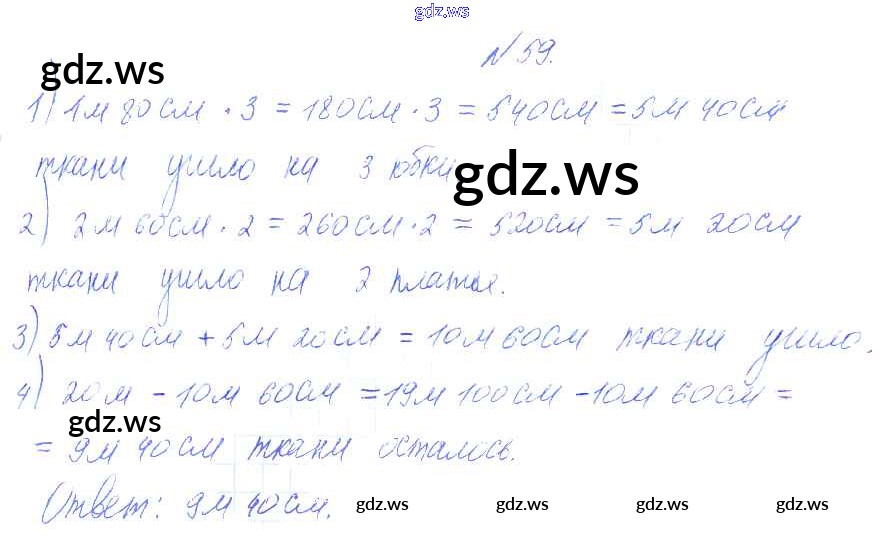 gdz.ws
№59.
gdz.ws
1) 1м 80см · 3 = 180см · 3 = 540см = 5м 40см
ткани ушло на 3 юбки
gdz.ws
2) 2м 60см · 2 = 260см · 2 = 520см = 5м 20см
ткани ушло на 2 платья.
3) 5м 40см + 5м 20см = 10м 60см ткани ушло.
4) 20м - 10м 60см = 19м 100см - 10м 60см =
gdz.ws
= 9м 40см ткани осталось.
Ответ: 9м 40см.
gdz.ws gdz.ws gdz.ws